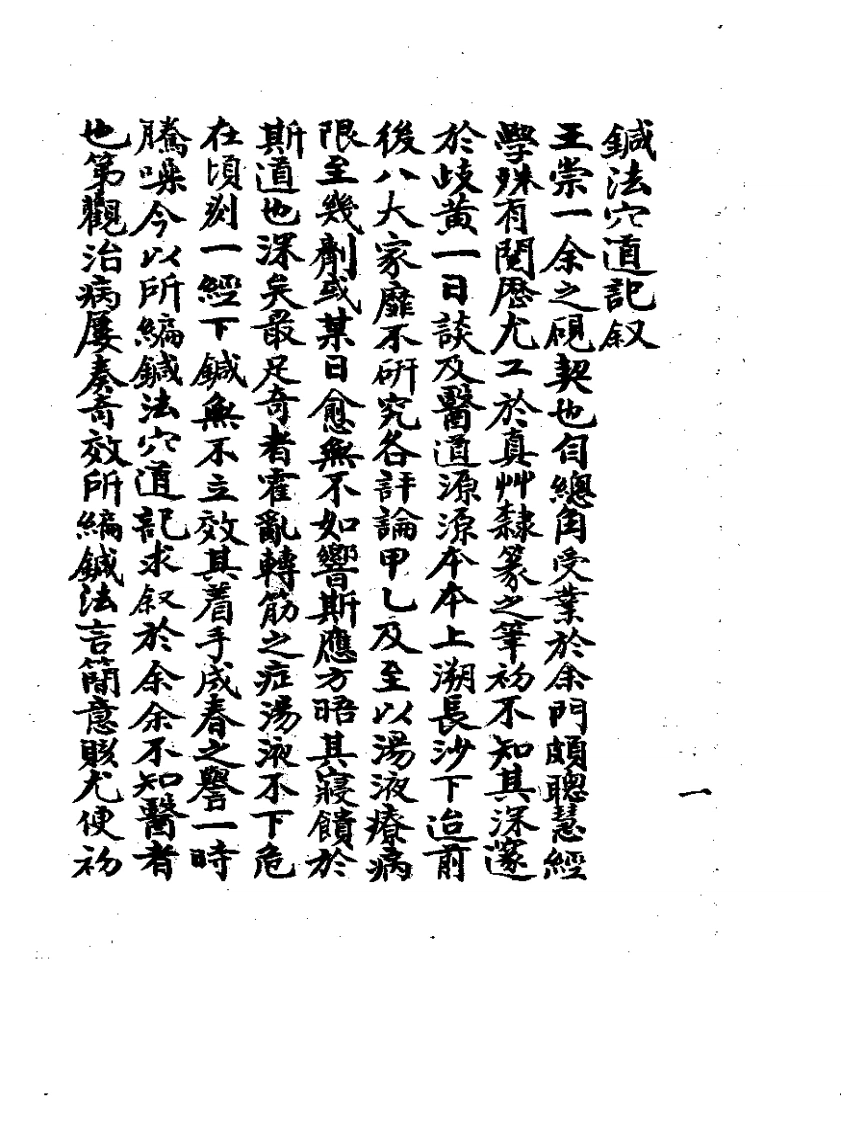 鍼法穴道記叙
王崇一余之硯契也自總角受業於余門頗聰慧經
學殊有閱歷尤工於真艸隸篆之筆初不知其深邃
於歧黃一日談及醫道源源本本上溯長沙下迨前
後八大家靡不研究各評論甲乙及至以湯液療病
限至幾劑或某日愈無不如響斯應方晤其寢饋於
斯道也深矣最足奇者霍亂轉筋之症湯液不下危
在頃刻一經下鍼無不立效其着手成春之譽一時
騰噪今以所編鍼法穴道記求叙於余余不知醫者
也第觀治病屡奏奇效所編鍼法言簡意賅尤便初
一